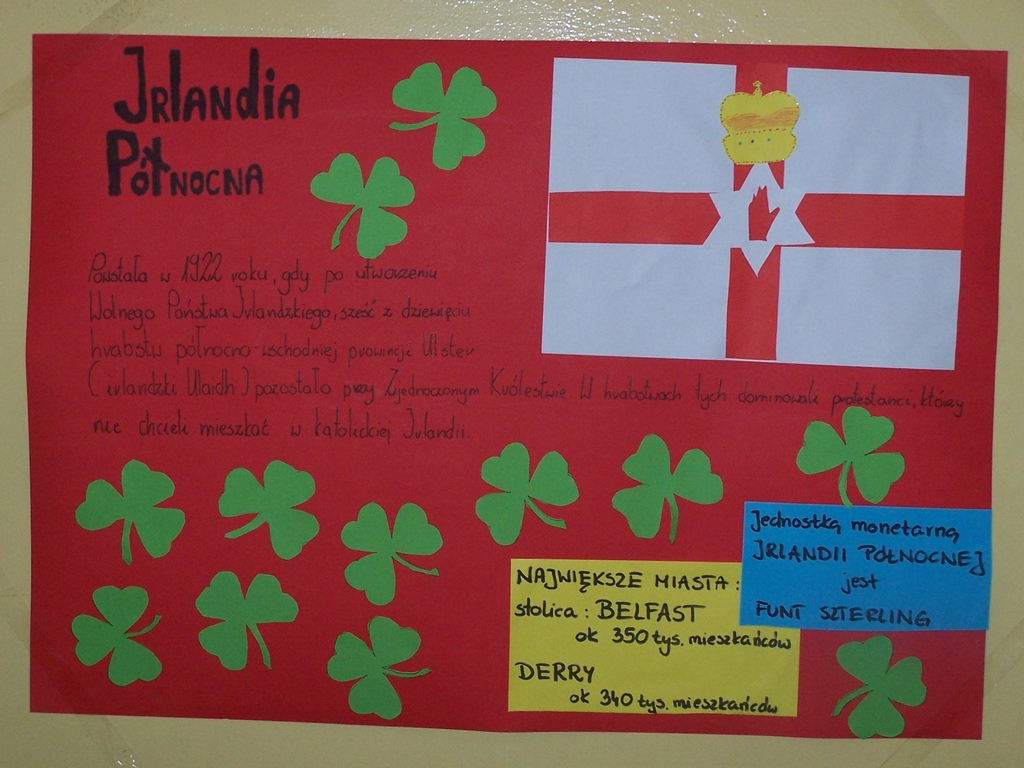 Irlandia
Północna
Powstała w 1922 roku, gdy po utworzeniu
Wolnego Państwa Irlandzkiego, sześć z dziewięciu
hrabstw północno wschodniej prowincji Ulster
(irlandzki Ulaidh) pozostało przy Zjednoczonym Królestwie. W hrabstwach tych dominowali protestanci, którzy
nie chcieli mieszkać w katolickiej Irlandii.
Jednostką monetarną
IRLANDII PÓŁNOCNEJ
jest
FUNT SZTERLING
NAJWIĘKSZE MIASTA:
stolica: BELFAST
ok 350 tyś. mieszkańców
DERRY
ok 340 tyś. mieszkańców